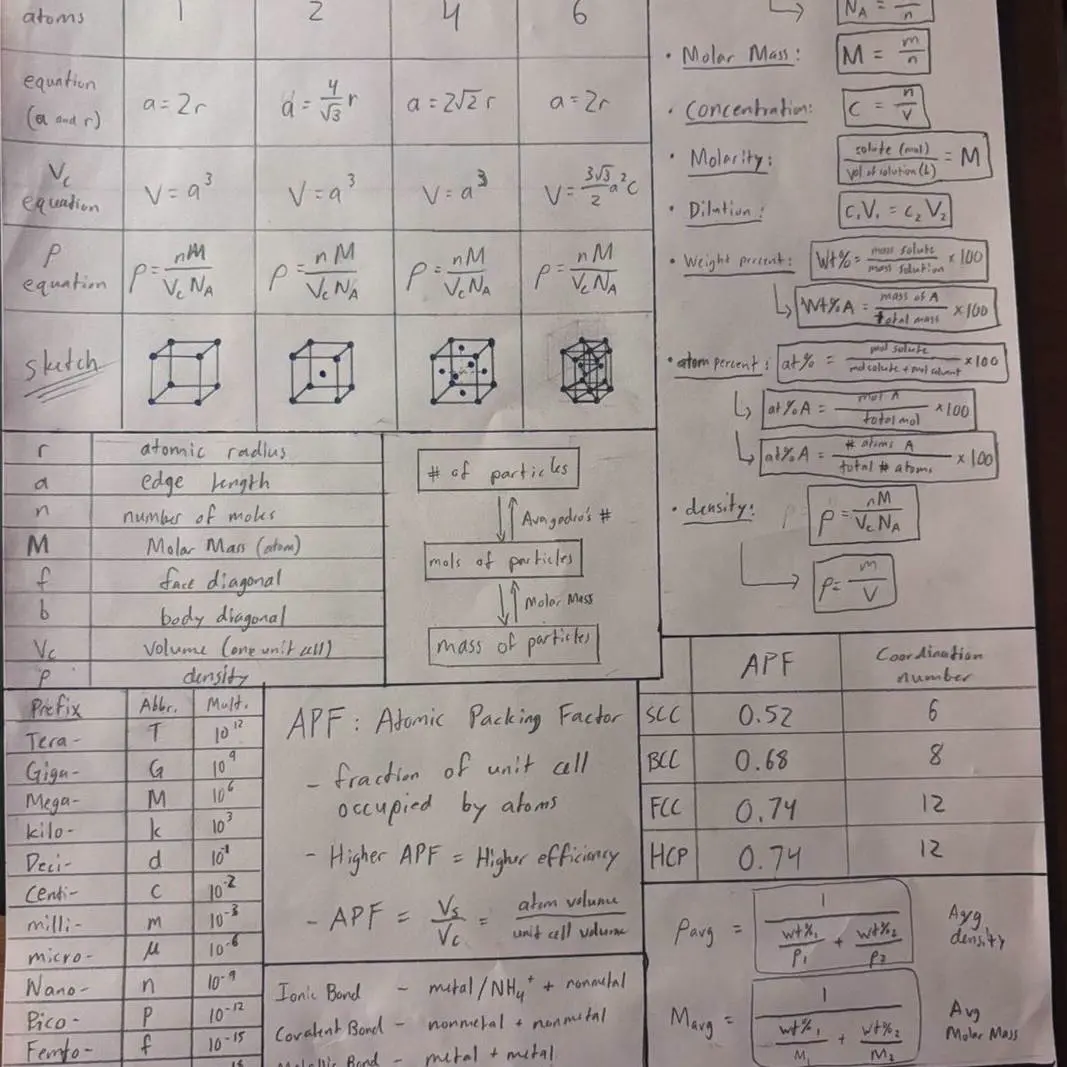 atoms 1 2 4 6
equation (a and r) a = 2r a = 4/√3 r a = 2√2 r a = 2r
Vc equation V = a³ V = a³ V = a³ V = 3√3/2 a²c
ρ equation ρ = nM/VcNA ρ = nM/VcNA ρ = nM/VcNA ρ = nM/VcNA
sketch
NA = /n
• Molar Mass: M = m/n
• Concentration: C = n/V
• Molarity: solute (mol)/vol of solution (L) = M
• Dilution: C₁V₁ = C₂V₂
• Weight percent: Wt% = mass solute/mass solution × 100
Wt%A = mass of A/total mass × 100
• atom percent: at% = mol solute/mol solute + mol solvent × 100
at%A = mol A/total mol × 100
at%A = # atoms A/total # atoms × 100
• density: ρ = nM/VcNA
ρ = m/V
r atomic radius
a edge length
n number of moles
M Molar Mass (atom)
f face diagonal
b body diagonal
Vc volume (one unit cell)
ρ density
# of particles
Avagadro's #
mols of particles
Molar Mass
mass of particles
APF Coordination number
SCC 0.52 6
BCC 0.68 8
FCC 0.74 12
HCP 0.74 12
Prefix Abbr. Mult.
Tera- T 10¹²
Giga- G 10⁹
Mega- M 10⁶
kilo- k 10³
Deci- d 10⁻¹
Centi- c 10⁻²
milli- m 10⁻³
micro- μ 10⁻⁶
Nano- n 10⁻⁹
Pico- p 10⁻¹²
Femto- f 10⁻¹⁵
APF: Atomic Packing Factor
- fraction of unit cell
occupied by atoms
- Higher APF = Higher efficiency
- APF = Vs/Vc = atom volume/unit cell volume
Ionic Bond - metal/NH₄⁺ + nonmetal
Covalent Bond - nonmetal + nonmetal
Metallic Bond - metal + metal
ρavg = 1/(wt%₁/ρ₁ + wt%₂/ρ₂) Avg density
Mavg = 1/(wt%₁/M₁ + wt%₂/M₂) Avg Molar Mass